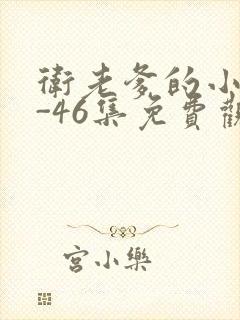 衛老爹的小
-46集免費觀
宮小樂